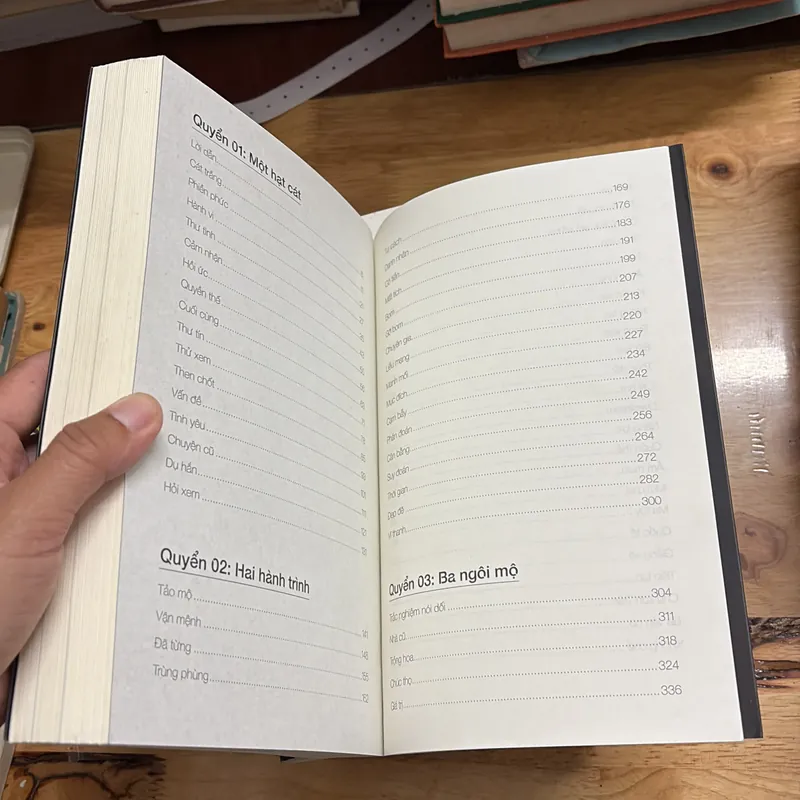 Quyển 01: Một hạt cát
Lời dẫn
Cát trắng
Phiền phức
Hành vi
Thư tình
Cảm nhận
Hồi ức
Quyền thế
Cuối cùng
Thư tín
Thử xem
Then chốt
Vấn đề
Tình yêu
Chuyện cũ
Dụ hắn
Hỏi xem
Quyển 02: Hai hành trình
Tảo mộ 141
Vận mệnh 148
Đã từng 155
Trùng phùng 162
169
176
183
191
Mất tích 199
Bom 207
Gỡ bom 213
Chuyên gia 220
Liều mạng 227
Manh mối 234
Mục đích 242
Cạm bẫy 249
Phán đoán 256
Cân bằng 264
Suy đoán 272
Thời gian 282
Đẹp đẽ 300
Vĩ thanh
Quyển 03: Ba ngôi mộ
Trắc nghiệm nói dối 304
Nhà cũ 311
Tống hoa 318
Chúc thọ 324
Giá trị 336